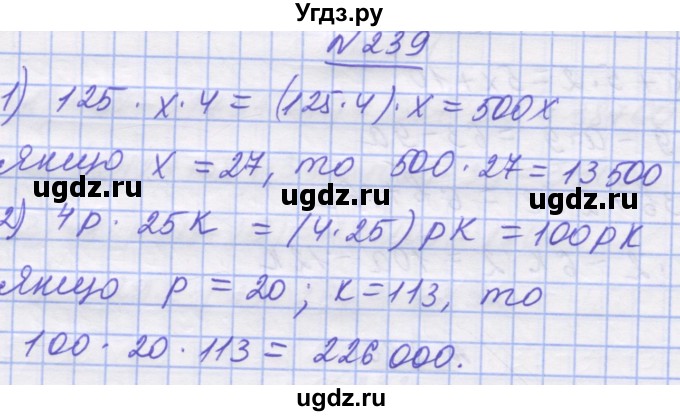 Угдз.ру
N 239
1) 125 · x · 4 = (125·4) · x = 500x
якщо x = 27, то 500 · 27 = 13 500
ugdz.ru ugdz.ru ugdz.ru
2) 4p · 25k = (4·25) pk = 100pk
якщо p = 20 ; k = 113, то
100 · 20 · 113 = 226 000.
ugdz.ru ugdz.ru